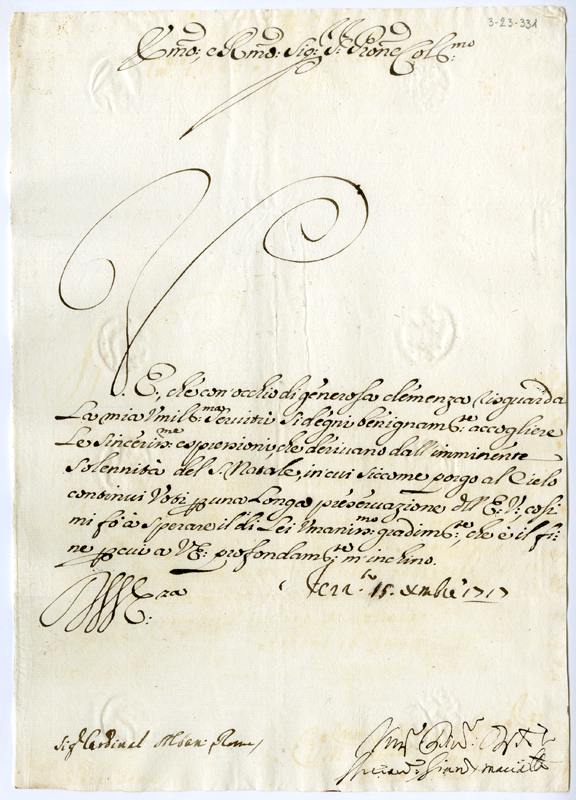 3-23-331
Emo: e Rmo: Sig: Sig: Prone Colmo:
V. E., che con occhio di generosa clemenza risguarda
La mia Vmilma: Servitù si degni benignamte: accogliere
Le Sincerime: espressioni, che derivano dall'imminente
Solennità del S. Natale, in cui siccome porgo al Cielo
continui Voti per una Longa preservazione dell'E: V: così
mi fò à sperare il di Lei Vmanimo: gradimto: che è il fi:
ne per cui a V. E: profondamte: m'inchino.
15. Xmbre 1717
VV. Eza:
Sigr Cardinal Albani Roma